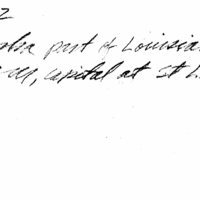 2
part of Louisia
, capital at St L